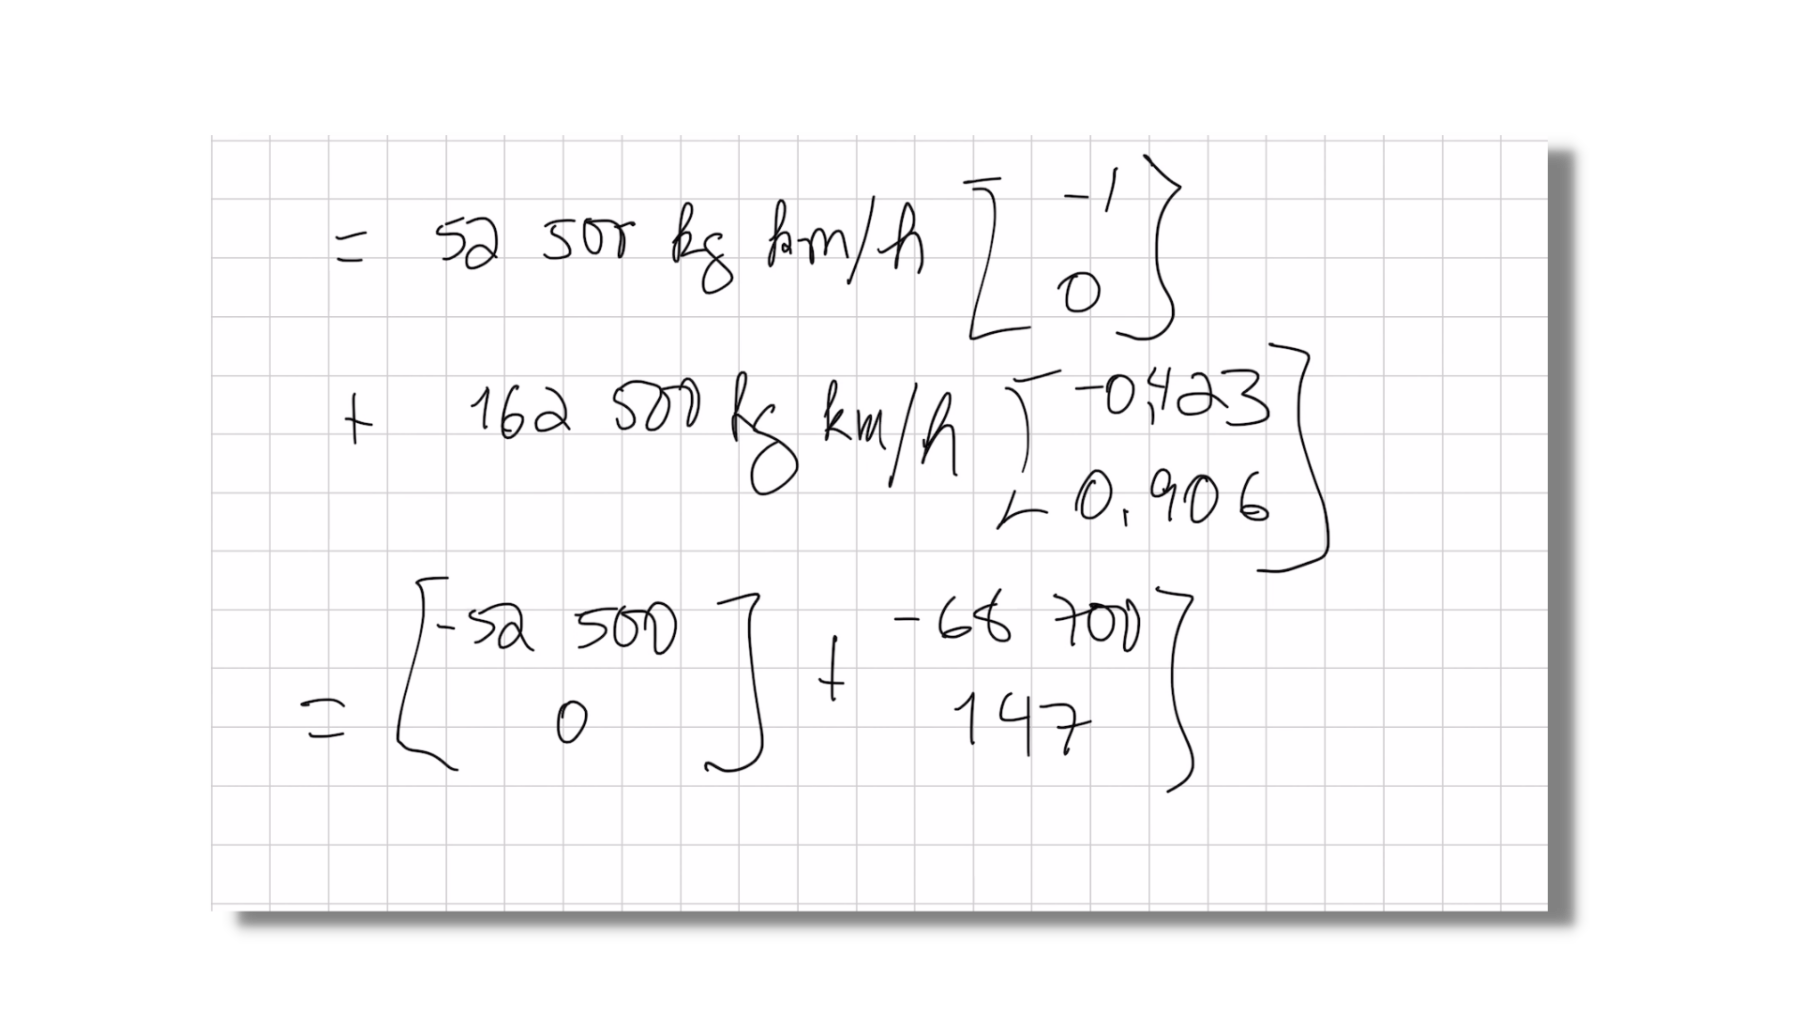 = 52 500 kg km/h [ -1
0 ]
+ 162 500 kg km/h [ -0,423
0.906 ]
= [ -52 500 ] + -68 700 ]
0 147